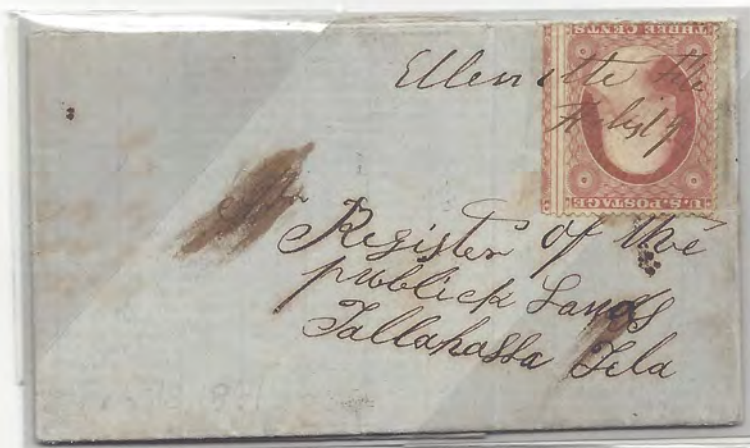 Ellenville Fla
July 19
THREE CENTS
U.S. POSTAGE
Register of the
publick Lands
Tallahassa Fla